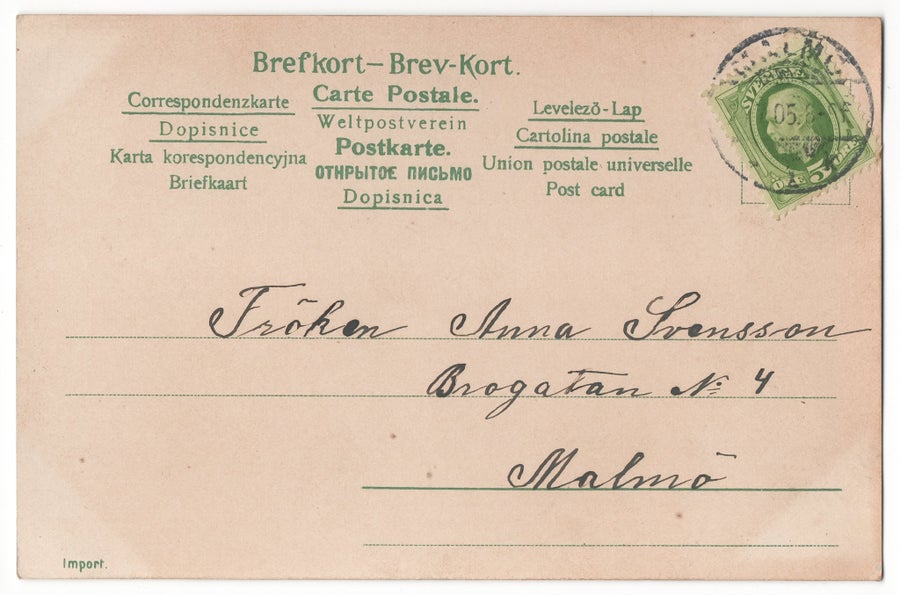 Brefkort—Brev-Kort.
Correspondenzkarte
Dopisnice
Karta korespondencyjna
Briefkaart
Carte Postale.
Weltpostverein
Postkarte.
ОТКРЫТОЕ ПИСЬМО
Dopisnica
Levelező-Lap
Cartolina postale
Union postale universelle
Post card
Fröken Anna Svensson
Brogatan No 4
Malmö
Import.